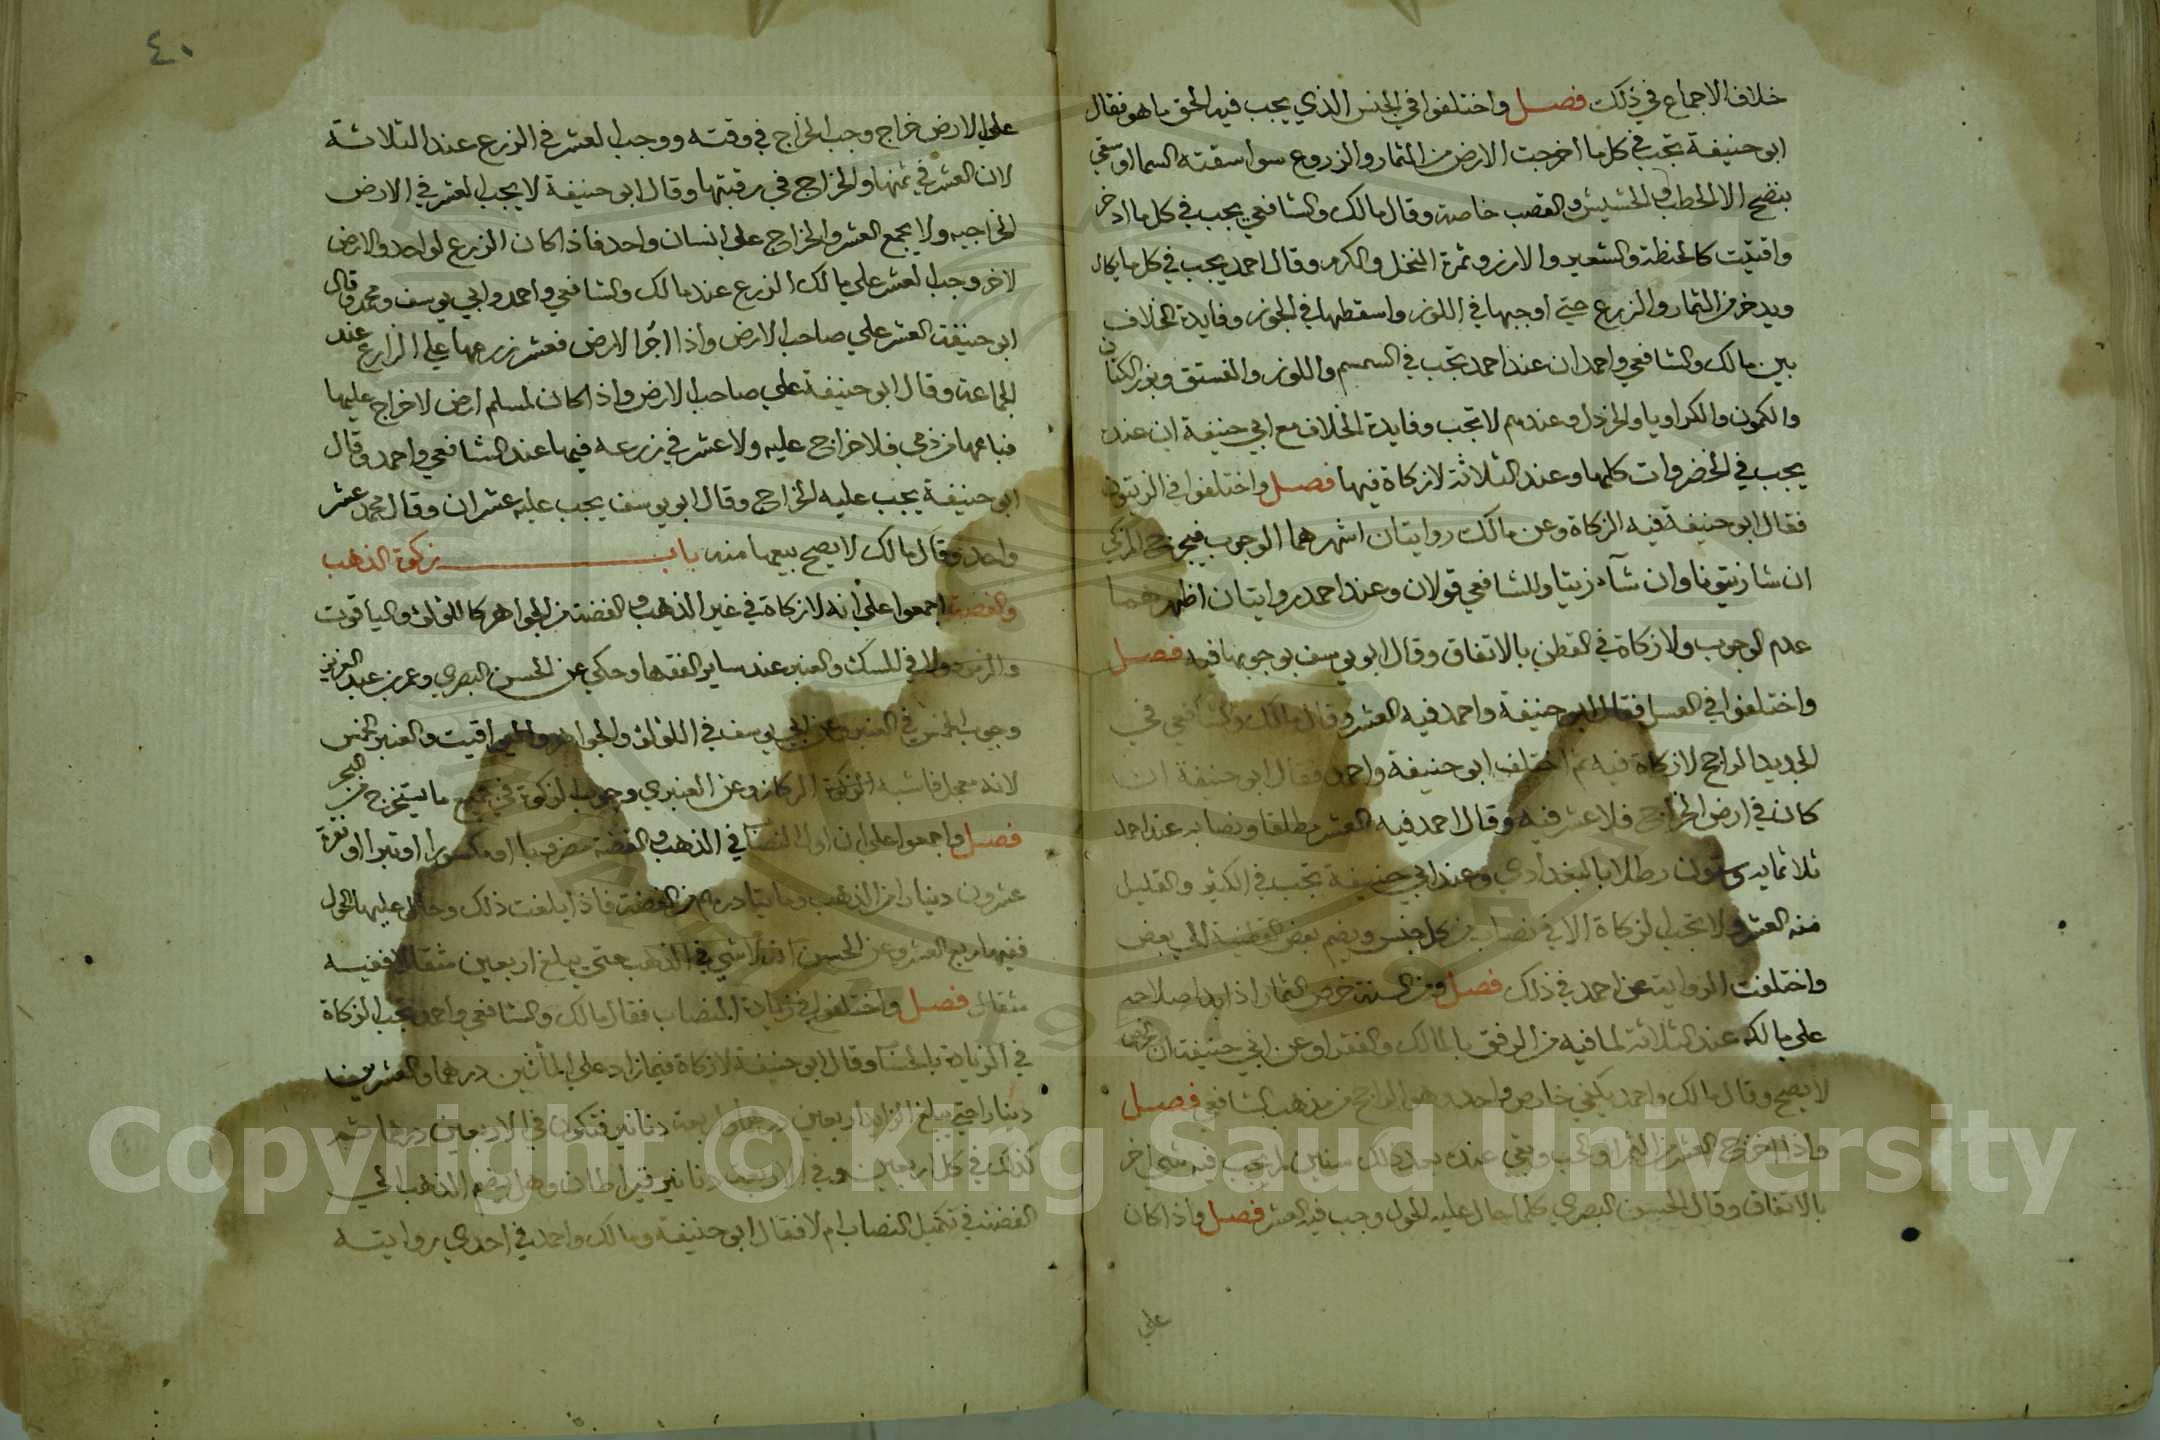 خلاف الاجماع في ذلك فصل واختلفوا في الجنس الذي يجب فيه الحق ما هو فقال
ابو حنيفة تجب في كل ما اخرجت الارض من الثمار والزروع سوا سقته السما او سقي
بنضح الا الحطب والحشيش والقصب خاصة وقال مالك والشافعي يجب في كل ما ادخر
واقتيت كالحنطة والشعير والارز وثمرة النخل والكرم وقال احمد يجب في كل ما يكال
ويدخر من الثمار والزرع حتي اوجبها في اللوز واسقطها في الجوز وفايدة الخلاف
بين مالك والشافعي واحمد ان عند احمد تجب في السمسم واللوز والفستق وبزر الكتان
والكمون والكراويا والخردل وعندهم لا تجب وفايدة الخلاف مع ابي حنيفة ان عنده
يجب في الخضروات كلها وعند الثلاثة لا زكاة فيها فصل واختلفوا في الزيتون
فقال ابو حنيفة فيه الزكاة وعن مالك روايتان اشهرهما الوجوب فيخرج المزكي
ان شا زيتونا وان شآء زيتا وللشافعي قولان وعند احمد روايتان اظهرهما
عدم الوجوب ولا زكاة في القطن بالاتفاق وقال ابو يوسف بوجوبها فيه فصل
واختلفوا في العسل فقال ابو حنيفة واحمد فيه العشر وقال مالك والشافعي في
الجديد الراجح لا زكاة فيه ثم اختلف ابو حنيفة واحمد فقال ابو حنيفة ان
كان في ارض الخراج فلا عشر فيه وقال احمد فيه العشر مطلقا ونصابه عند احمد
ثلاثمايه وستون رطلا بالبغدادي وعند ابي حنيفة تجب في الكثير والقليل
منه العشر ولا تجب الزكاة الا في نصاب من كل جنس ويضم بعض القطنية الي بعض
واختلفت الرواية عن احمد في ذلك فصل ومن السنة خرص الثمار اذا بدا صلاحه
علي مالكه عند الثلاثة لما فيه من الرفق بالمالك والفقرا وعن ابي حنيفة ان الخرص
لا يصح وقال مالك واحمد يكفي خارص واحد وهو الراجح من مذهب الشافعي فصل
واذا اخرج العشر من الثمر او الحب وبقي عنده بعد ذلك سنين لم يجب فيه شي اخر
بالاتفاق وقال الحسن البصري كلما حال عليه الحول وجب فيه العشر فصل واذا كان
علي
٤٠
علي الارض خراج وجب الخراج في وقته ووجب العشر في الزرع عند الثلاثة
لان العشر في ثمنها والخراج في رقبتها وقال ابو حنيفة لا يجب العشر في الارض
الخراجيه ولا يجمع العشر والخراج علي انسان واحد فاذا كان الزرع لواحد والارض
لاخر وجب العشر علي مالك الزرع عند مالك والشافعي واحمد وابي يوسف ومحمد وقال
ابو حنيفة العشر علي صاحب الارض واذا اجر الارض فعشر زرعها علي الزارع عند
الجماعة وقال ابو حنيفة علي صاحب الارض واذا كان لمسلم ارض لا خراج عليها
فباعها من ذمي فلا خراج عليه ولا عشر في زرعه فيها عند الشافعي واحمد وقال
ابو حنيفة يجب عليه الخراج وقال ابو يوسف يجب عليه عشران وقال محمد عشر
واحد وقال مالك لا يصح بيعها منه باب زكوة الذهب
والفضة اجمعوا علي انه لا زكاة في غير الذهب والفضة من الجواهر كاللؤلؤ والياقوت
والزمرد ولا في المسك والعنبر عند ساير الفقها وحكي عن الحسن البصري وعمر بن عبد العزيز
وجوب الخمس في العنبر وعن ابي يوسف في اللؤلؤ والجواهر واليواقيت والعنبر الخمس
لانه معجل فاشبه الزكوة الركاز وعن العنبري وجوب الزكوة في جميع ما يستخرج من البحر
فصل واجمعوا علي ان اول النصاب في الذهب والفضة مضروبا او مكسورا او تبرا او نقرة
عشرون دينارا من الذهب ومايتا درهم من الفضة فاذا بلغت ذلك وحال عليها الحول
ففيها ربع العشر وعن الحسن انه لا شي في الذهب حتي يبلغ اربعين مثقالا ففيه
مثقال فصل واختلفوا في زيادة النصاب فقال مالك والشافعي واحمد تجب الزكاة
في الزيادة بالحساب وقال ابو حنيفة لا زكاة فيما زاد علي المأتين درهما والعشرين
دينارا حتي يبلغ الزايد اربعين درهما واربعة دنانير فتكون في الاربعين درهما ثم
كذلك في كل اربعين وفي الاربعة دنانير قيراطان وهل يضم الذهب الي
الفضة في تكميل النصاب ام لا فقال ابو حنيفة ومالك واحمد في احدي روايتيه
Copyright © King Saud University